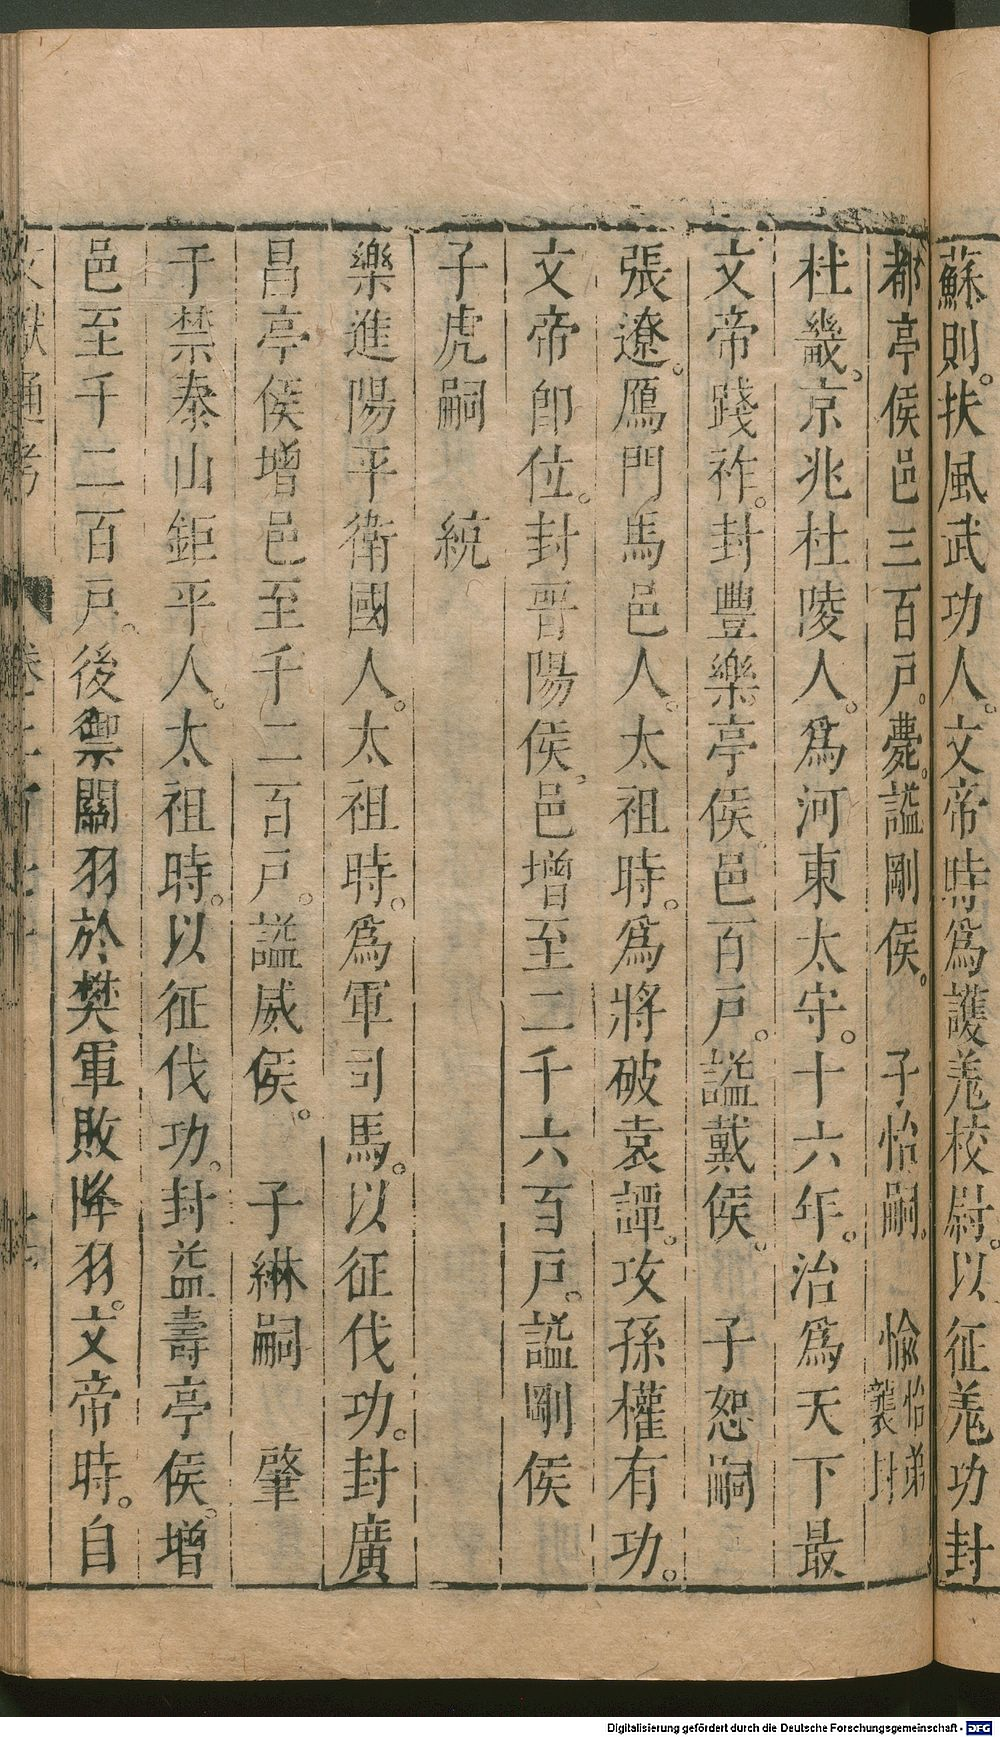 蘇則。扶風武功人。文帝時爲護羌校尉。以征羌功封
都亭侯邑三百戸。薨。諡剛侯。　子怡嗣。　愉怡弟襲封
杜畿。京兆杜陵人。爲河東太守。十六年。治爲天下最
文帝踐祚。封豐樂亭侯。邑百戸。諡戴侯。　子恕嗣
張遼。鴈門馬邑人。太祖時。爲將破袁譚。攻孫權有功。
文帝卽位。封晉陽侯。邑增至二千六百戸。諡剛侯
子虎嗣　統
樂進陽平衛國人。太祖時。爲軍司馬。以征伐功。封廣
昌亭侯增邑至千二百戸。諡威侯。　子綝嗣　肇
于禁泰山鉅平人。太祖時。以征伐功。封益壽亭侯。增
邑至千二百戸。後禦關羽於樊軍敗降羽。文帝時。自
文獻通考　卷二百七十
Digitalisierung gefördert durch die Deutsche Forschungsgemeinschaft - DFG